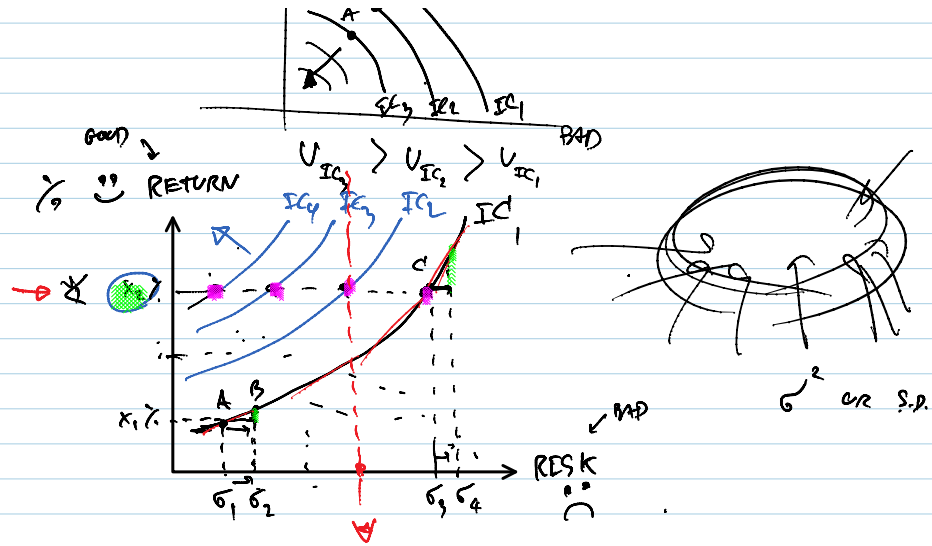 A
IC₃ IC₂ IC₁
BAD
GOOD
U_IC₃ > U_IC₂ > U_IC₁
% RETURN
IC₄ IC₃ IC₂ IC₁
C
X₂ %
A B
X₁ %
σ² OR S.D.
BAD
RISK
σ₁ σ₂ σ₃ σ₄